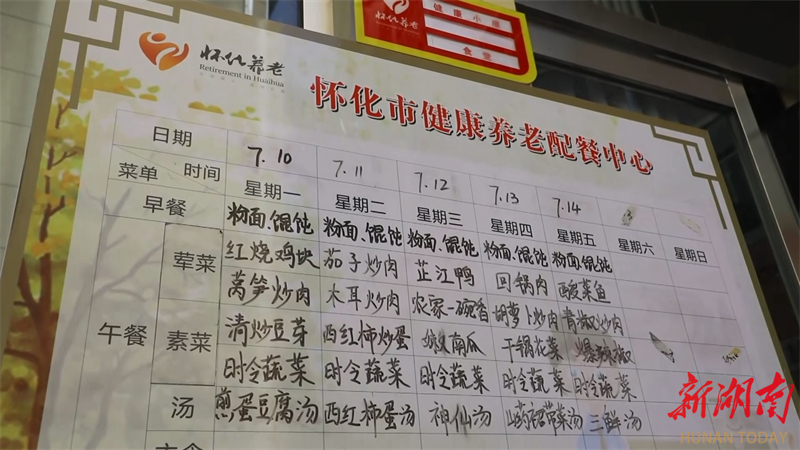 健康小屋
食堂
怀化养老
Retirement in Huaihua
怀化市健康养老配餐中心
日期 7.10 7.11 7.12 7.13 7.14
菜单 时间 星期一 星期二 星期三 星期四 星期五 星期六 星期日
早餐 粉面、馄饨 粉面、馄饨 粉面、馄饨 粉面、馄饨 粉面、馄饨
午餐 荤菜 红烧鸡块 茄子炒肉 芷江鸭 回锅肉 酸菜鱼
莴笋炒肉 木耳炒肉 农家一碗香 胡萝卜炒肉 青椒炒肉
素菜 清炒豆芽 西红柿炒蛋 南瓜 干锅花菜 辣椒
时令蔬菜 时令蔬菜 时令蔬菜 时令蔬菜 时令蔬菜
汤 煎蛋豆腐汤 西红柿蛋汤 神仙汤 带菜汤 三鲜汤
新湖南
HUNAN TODAY